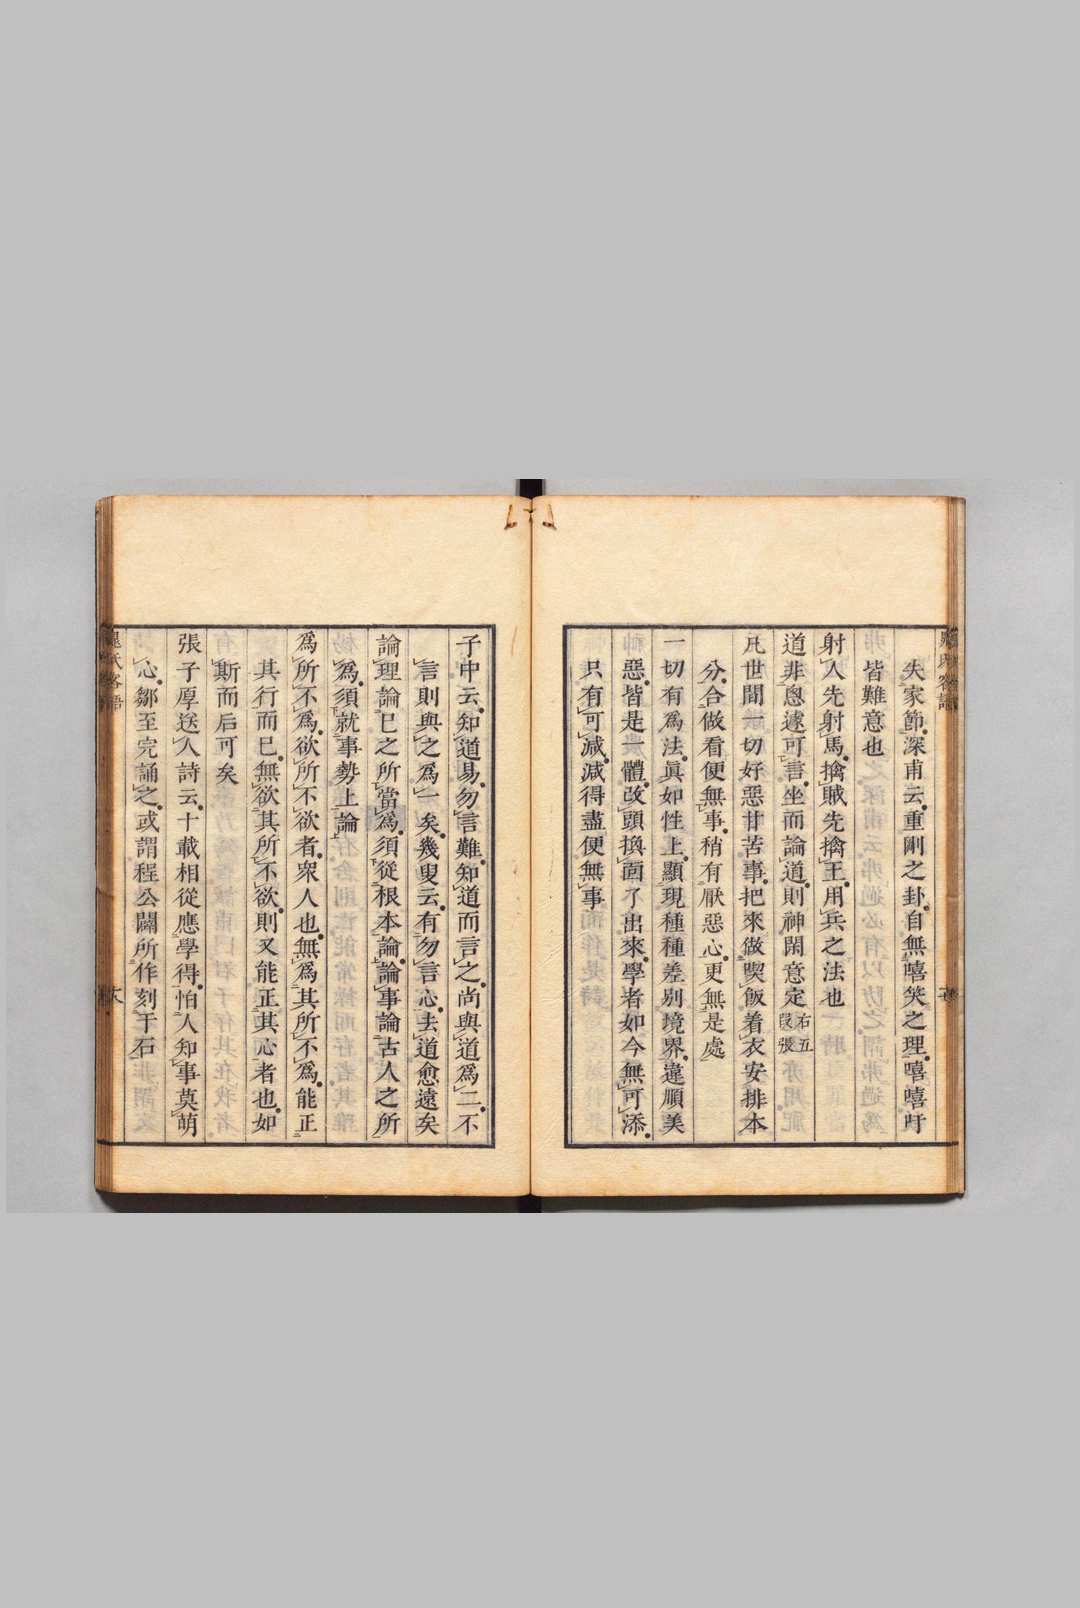 失家節深甫云重剛之卦自無嘻笑之理嘻嘻吁
皆難意也
射人先射馬擒賊先擒王用兵之法也
道非忽遽可言坐而論道則神閑意定右五段張
凡世間一切好惡甘苦事把來做喫飯着衣安排本
分合做看便無事稍有厭惡心更無是處
一切有爲法眞如性上顯現種種差別境界違順美
惡皆是貴體改頭換面了出來學者如今無可添
只有可減減得盡便無事
子中云知道易勿言難知道而言之尚與道爲二不
言則與之爲一矣幾叟云有勿言心去道愈遠矣
論理論已之所當爲須從根本論論事論古人之所
爲須就事勢上論
爲所不爲欲所不欲者衆人也無爲其所不爲能正
其行而已無欲其所不欲則又能正其心者也如
斯而后可矣
張子厚送人詩云十載相從應學得怕人知事莫萌
心鄒至完誦之或謂程公闢所作刻于石
晁氏客語